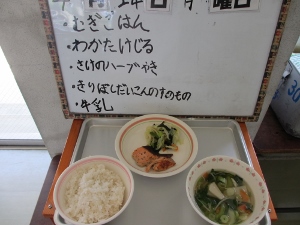 月 24日 月曜日
・むぎごはん
・わかたけじる
・さけのハーブやき
・きりぼしだいこんのすのもの
・牛乳